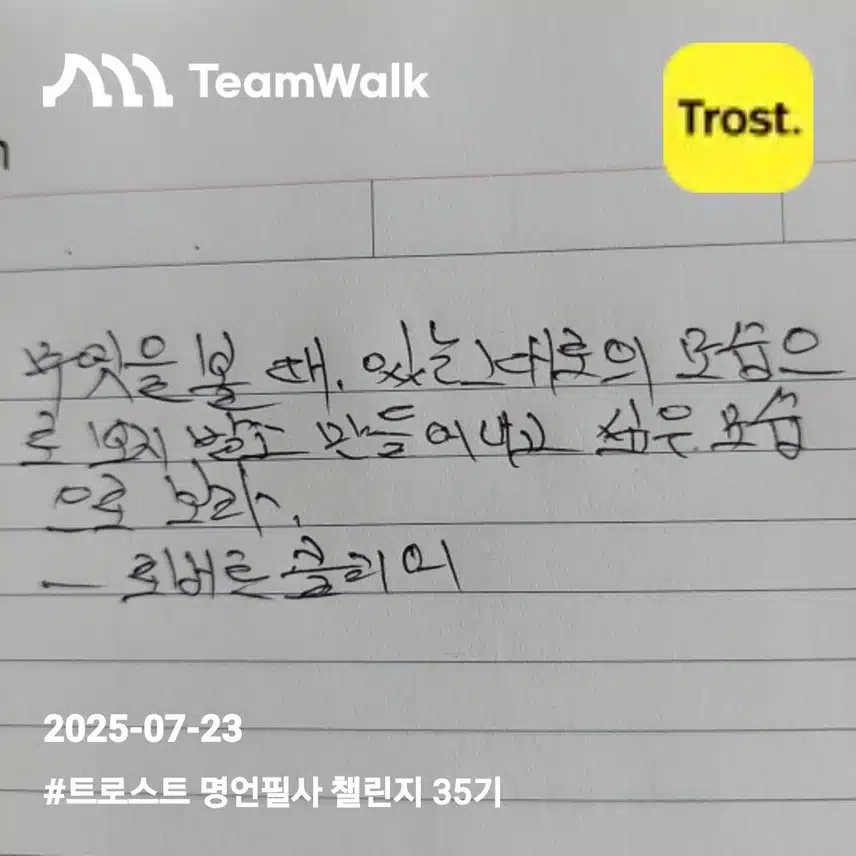 TeamWalk
Trost.
무엇을 볼 때, 있는 대로의 모습으
로 보지 말고 만들어내고 싶은 모습
으로 보라.
- 로버트 콜리어
2025-07-23
#트로스트 명언필사 챌린지 35기